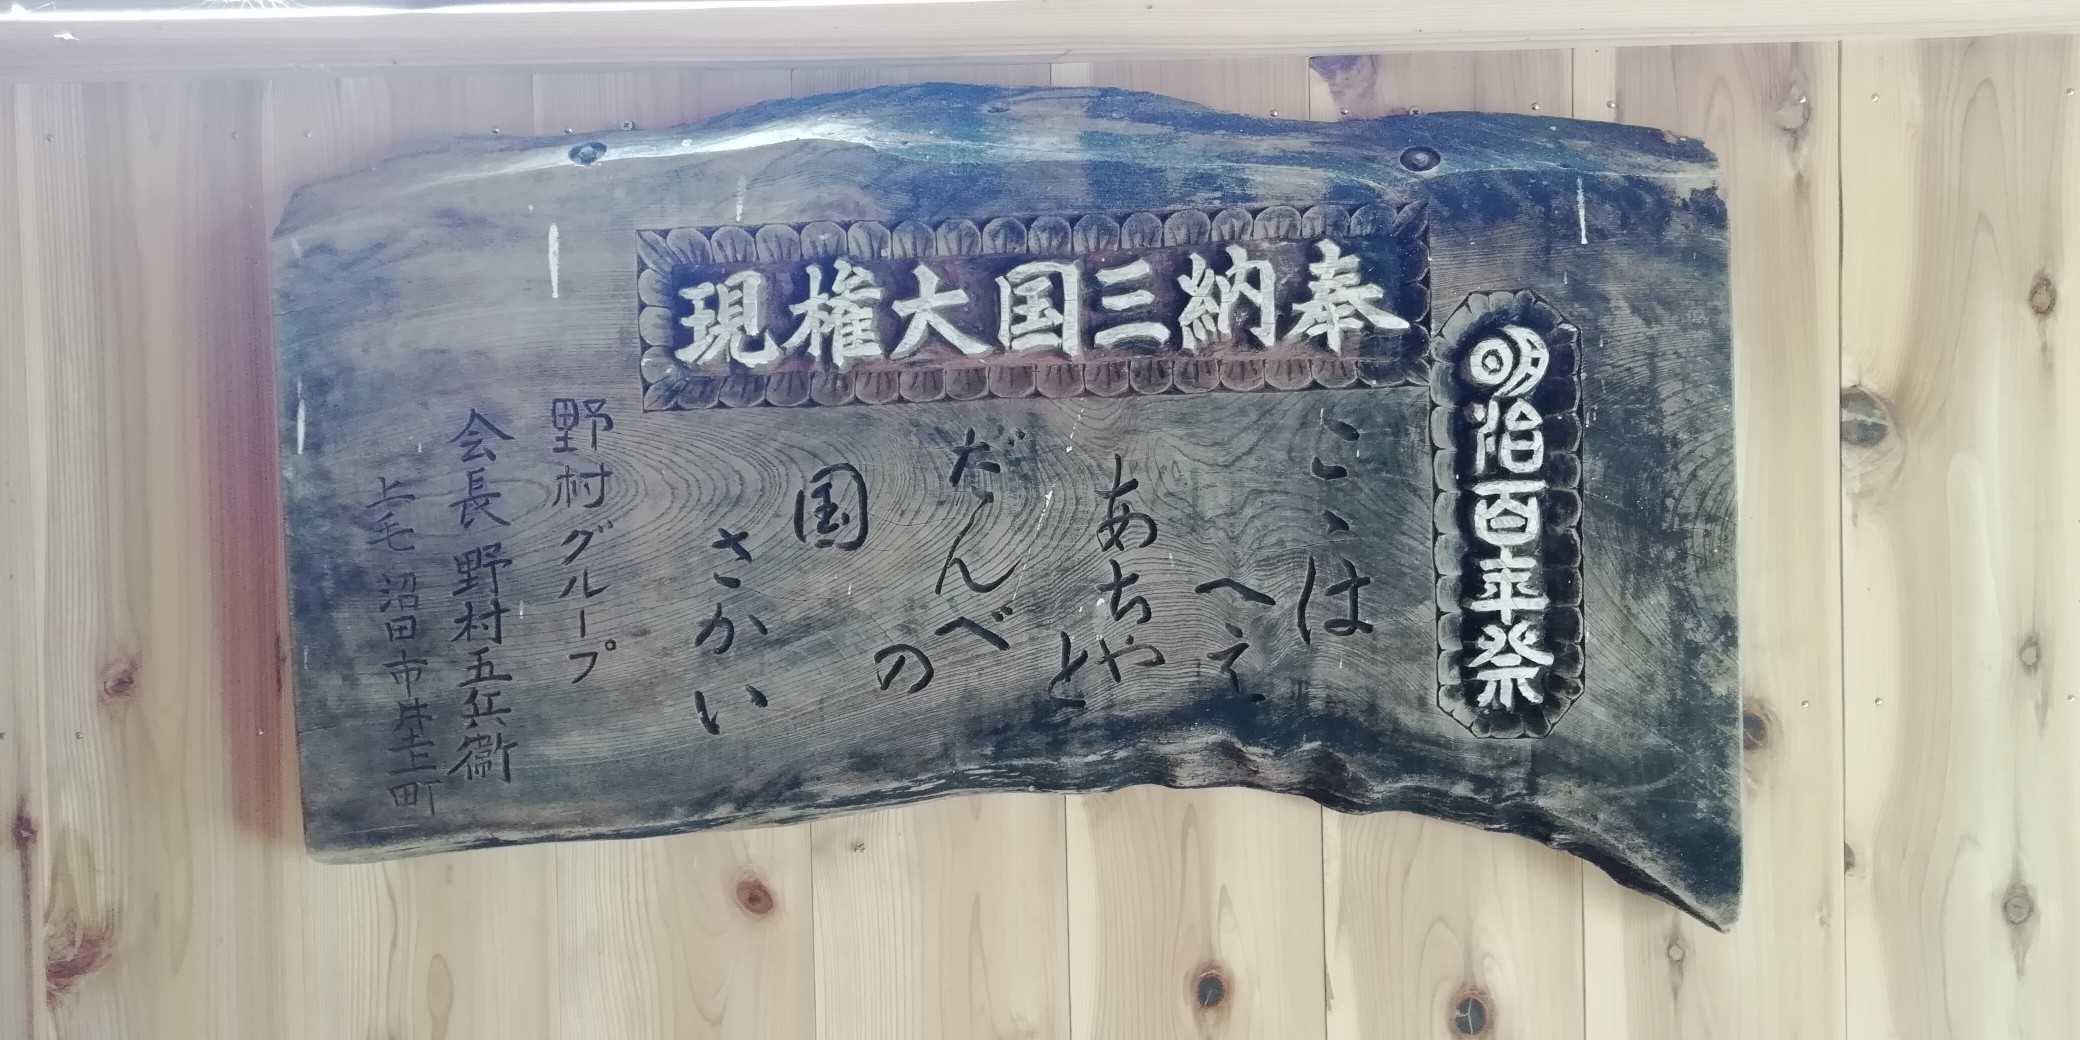 明治百年祭
奉納三国大権現
こゝは
へえ
あちや
と
だんべ
の
国
さかい
野村グループ
会長 野村五兵衛
上毛 沼田市